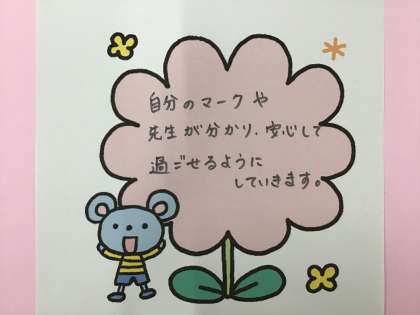 自分のマークや
先生が分かり、安心して
過ごせるように
していきます。